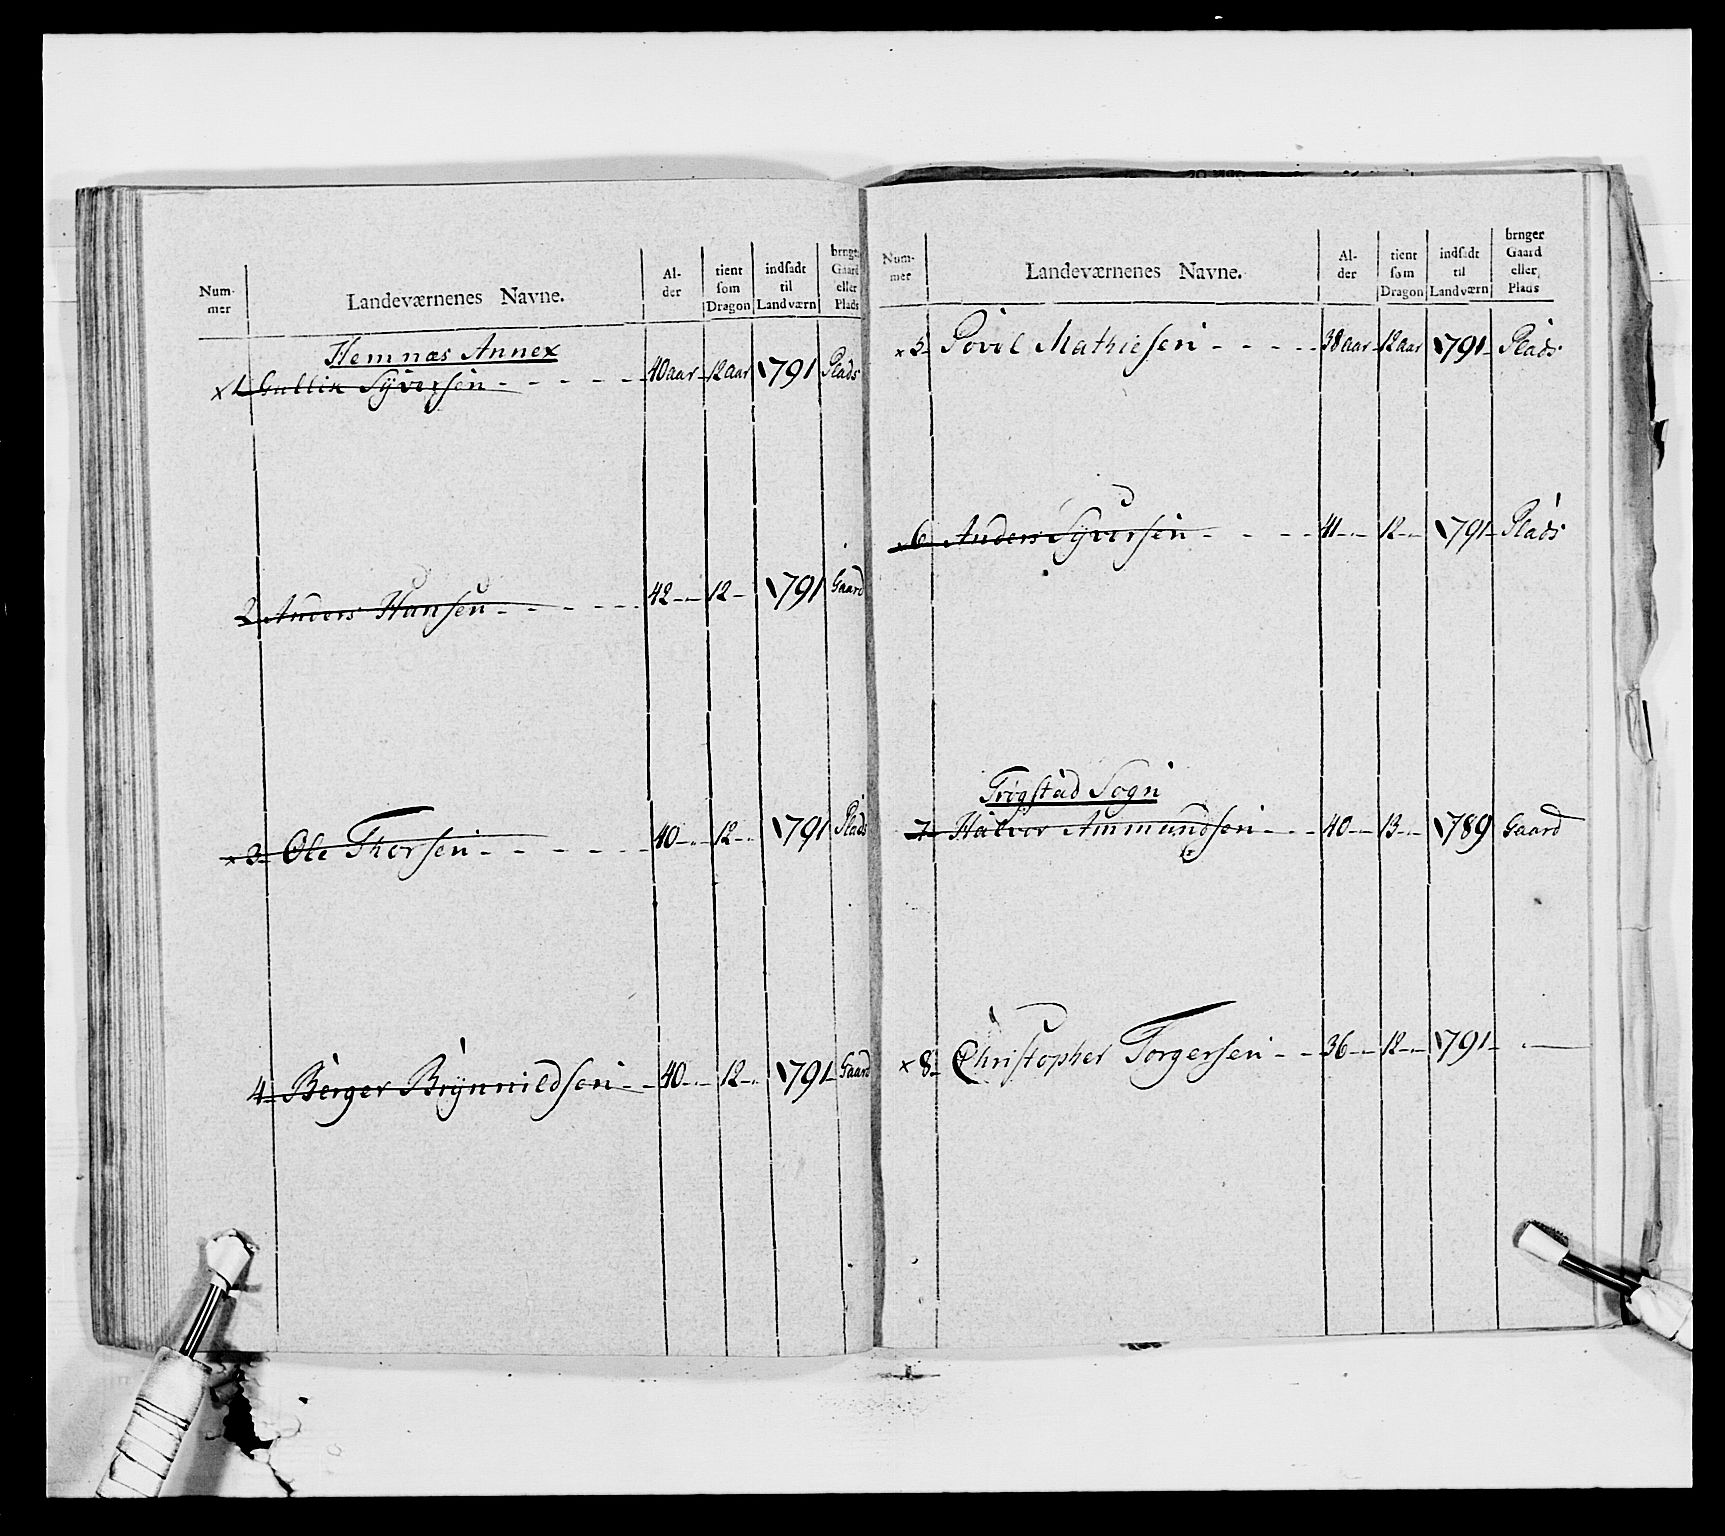 Num-mer | Landeværnenes Navne. | Al-der | tient som Dragon | indsadt til Landværn | bruger Gaard eller Plads
Hemnæs Annex
x 1 Gullik Syversen - - - - - 40 aar - 12 aar 1791 Plads
2 Anders Hansen - - - - - 42 - " - 12 - 1791 Gaard
x 3 - Ole Thorsen - - - - - 40 - " - 12 - " 1791 Plads
4 - Berger Brynnildsen - - 40 - " - 12 - " 1791 - Gaard
Num-mer | Landeværnenes Navne. | Al-der | tient som Dragon | indsadt til Landværn | bruger Gaard eller Plads
x 5 - Povel Mathiesen - - - - 38 aar - 12 aar 1791 - Plads
x 6 Anders Syversen - - - - 41 - " - 12 - " - 1791 - Plads
Trøgstad Sogn
7 - Halvor Ammundsen - - - 40 - " - 13 - " - 1789 Gaard
x 8 - Christopher Torgersen - - 36 - " - 12 - " - 1791 - " -